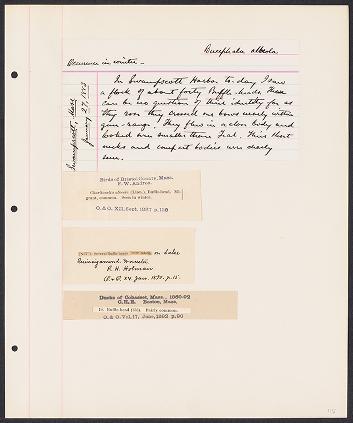 Bucephala albeola
Occurrence in winter -
Swampscott, Mass
January 27, 1883
In Swampscott Harbor to-day I saw
a flock of about forty Buffle-heads. There
can be no question of their identity for as
they rose they crossed our bows nearly within
gun-range. They flew in a close body and
looked even smaller than Teal. Their short
necks and compact bodies were clearly
seen.
Birds of Bristol County, Mass.
F. W. Andros.
(Linn.), Buffle-head. Mi-
grant, common. Seen in winter.
O. & O. XII, Sept. 1887 p. 138
on Lake
Quinsigamond, Worcester
O. & O. XV. Jan. p. 15
Ducks of Cohasset, Mass., 1860-92
Boston, Mass.
Buffle-head. Fairly common.
O. & O. Vol. 17, June, 1892 p. 90